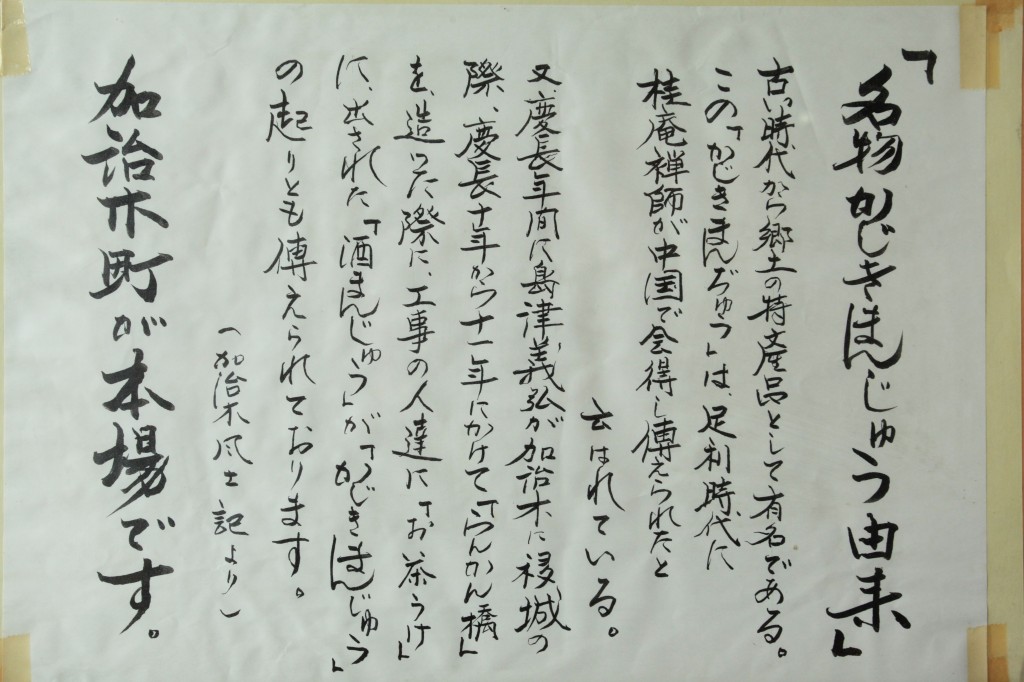 「名物かじきまんじゅう由来」
古い時代から郷土の特産品として有名である。
この「かじきまんぢゅう」は、足利時代に
桂庵禅師が中国で会得し傳えられたと
云はれている。
又、慶長年間に島津義弘が加治木に移城の
際、慶長十年から十一年にかけて「らんかん橋」
を、造った際に、工事の人達に「お茶うけ」
に、出された「酒まんじゅう」が「かじきまんじゅう」
の起りとも傳えられております。
（加治木風土記より）
加治木町が本場です。